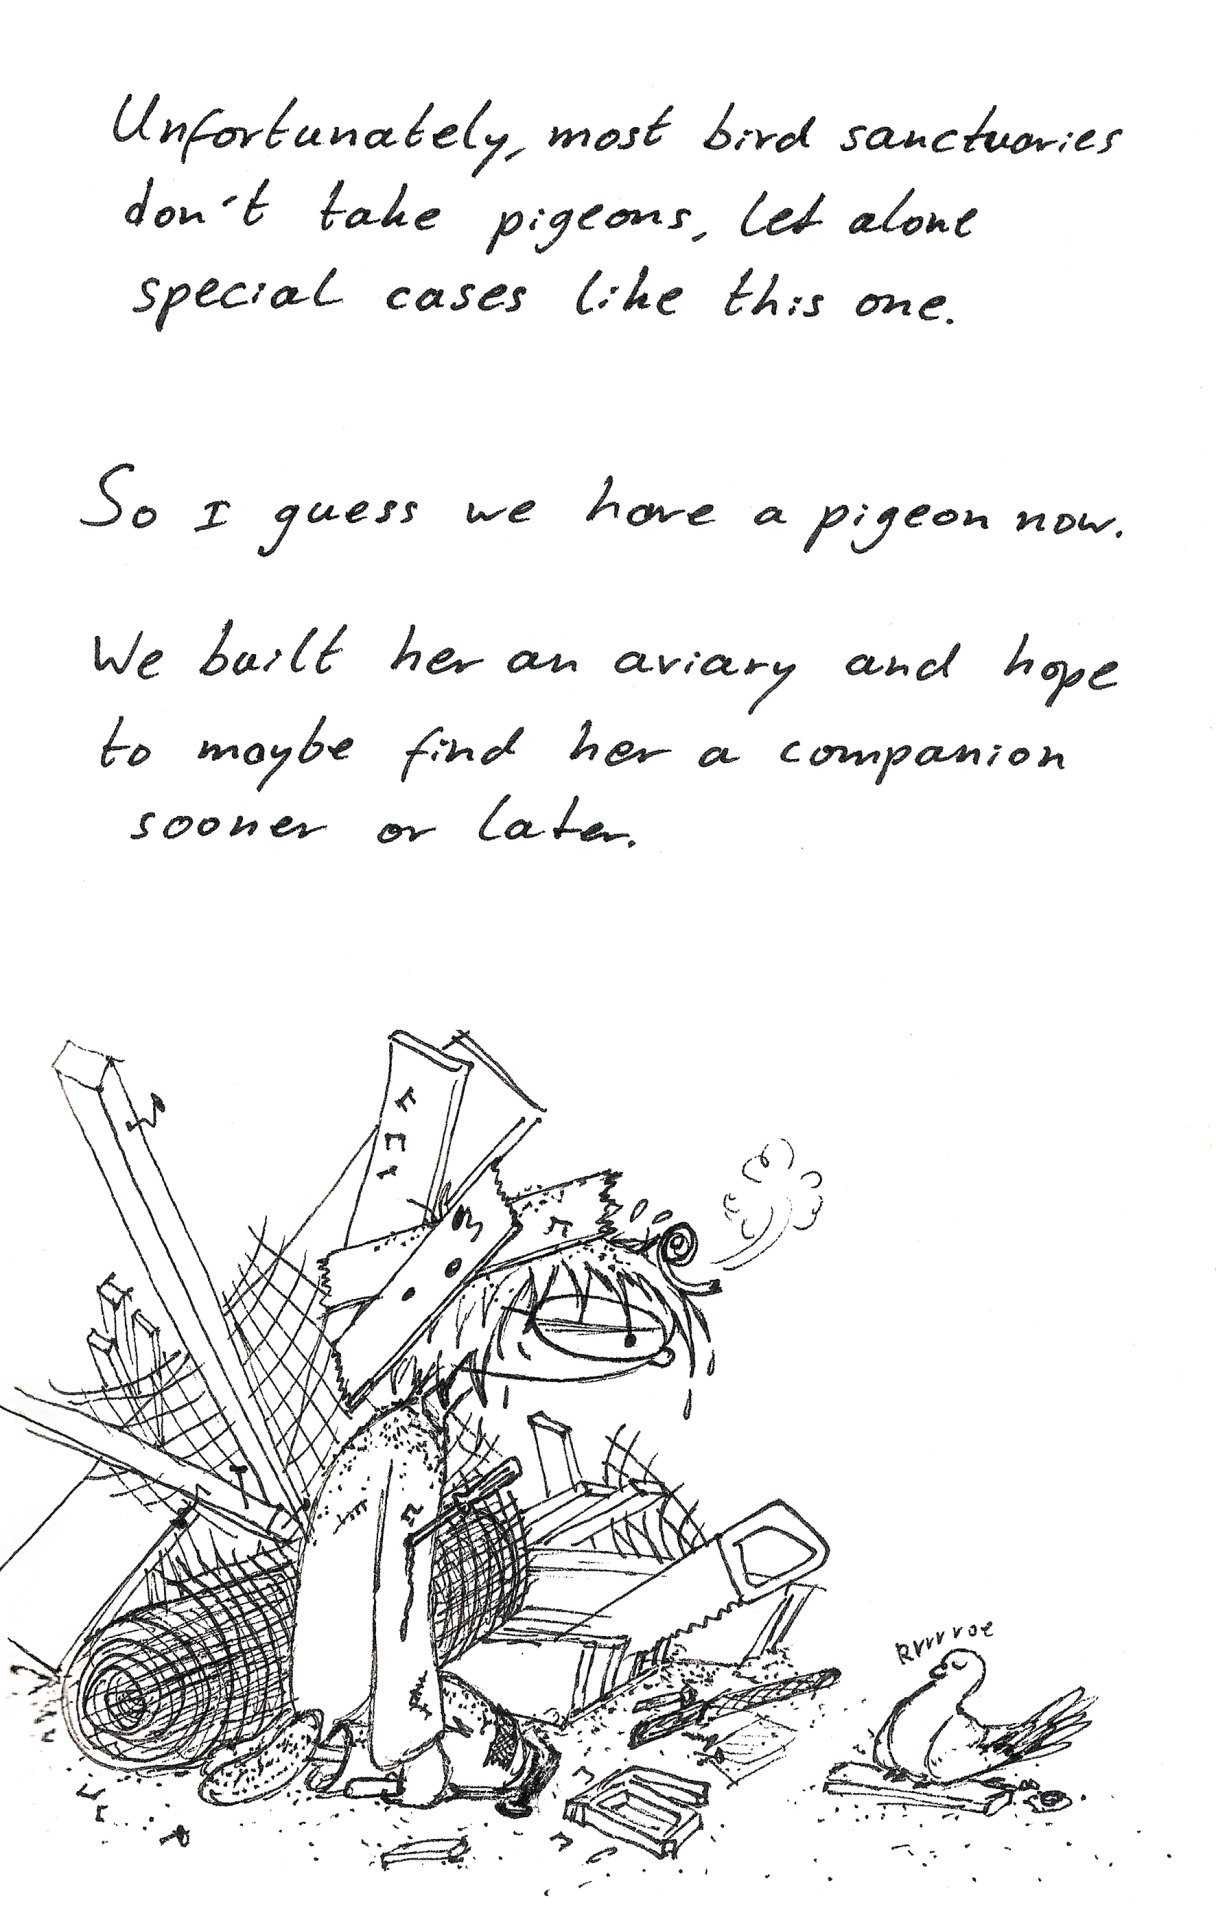 Unfortunately, most bird sanctuaries
don't take pigeons, let alone
special cases like this one.
So I guess we have a pigeon now.
We built her an aviary and hope
to maybe find her a companion
sooner or later.
Rrrrroe